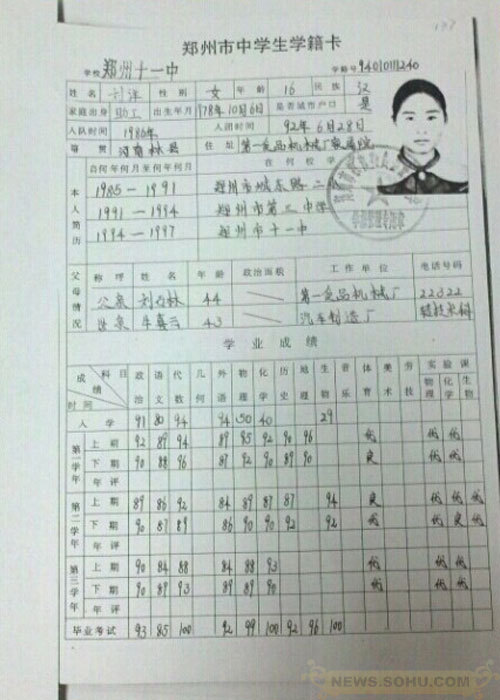 郑州市中学生学籍卡
学校 郑州十一中 学籍号 94010111240
姓名 刘洋 性别 女 年龄 16 民族 汉
家庭出身 职工 出生年月 1978年10月6日 是否城市户口 是
入队时间 1986年 入团时间 92年6月28日
籍贯 河南林县 住址 第一食品机械厂家属院
本人简历 自何年何月至何年何月 在何校学
1985—1991 郑州市城东路二
1991—1994 郑州市第三中学
1994—1997 郑州市十一中
父母情况 称呼 姓名 年龄 政治面积 工作单位 电话号码
父亲 44 第一食品机械厂 22322
母亲 牛喜云 43 汽车制造厂
学业成绩
成绩 科目 时间 政治 语文 代数 几何 外语 物理 化学 历史 地理 生物 音乐 体育 美术 劳技 实验课 物理 化学 生物
入学 91 80 94 94 50 40 29
第一学年 上期 92 89 94 89 95 92 90 96 优 优 优
下期 90 88 96 87 92 90 89 90 良 优 优
年评
第二学年 上期 89 86 92 84 89 87 87 94 良 优 优 优
下期 90 87 89 86 90 90 92 92 优 优 良 优
年评
第三学年 上期 90 84 88 84 88 93 优 优 优
下期 90 89 93 89 89 90 优 优 优
年评
毕业考试 93 85 100 92 99 100 92 96 100
NEWS.SOHU.COM